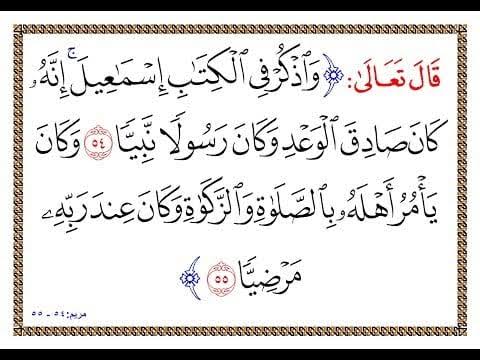 قَالَ تَعَالَىٰ: ﴿وَٱذۡكُرۡ فِي ٱلۡكِتَٰبِ إِسۡمَٰعِيلَۚ إِنَّهُۥ
كَانَ صَادِقَ ٱلۡوَعۡدِ وَكَانَ رَسُولٗا نَّبِيّٗا ٥٤ وَكَانَ
يَأۡمُرُ أَهۡلَهُۥ بِٱلصَّلَوٰةِ وَٱلزَّكَوٰةِ وَكَانَ عِندَ رَبِّهِۦ
مَرۡضِيّٗا ٥٥﴾
مريم: ٥٤ - ٥٥